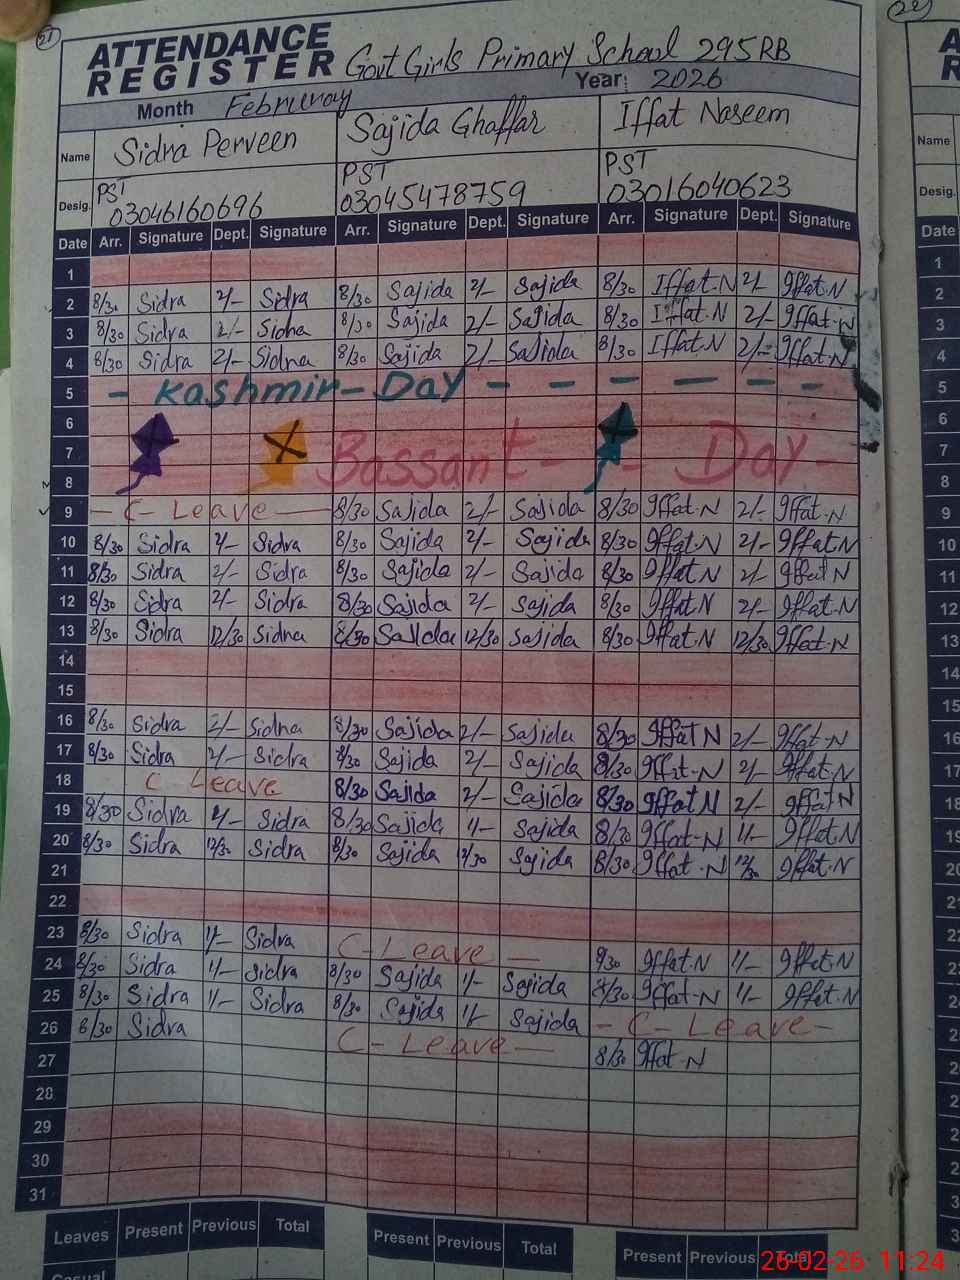 21
ATTENDANCE
REGISTER Govt Girls Primary School 295RB
Month Februray Year: 2026
Name Sidra Perveen Sajida Ghaffar Iffat Naseem
Desig. PST 03046160696 PST 03045478759 PST 03016040623
Date Arr. Signature Dept. Signature Arr. Signature Dept. Signature Arr. Signature Dept. Signature
1
2 8/30 Sidra 2/- Sidra 8/30 Sajida 2/- Sajida 8/30 Iffat.N 2/- Iffat.N
3 8/30 Sidra 2/- Sidra 8/30 Sajida 2/- Sajida 8/30 Iffat.N 2/- Iffat.N
4 8/30 Sidra 2/- Sidra 8/30 Sajida 2/- Sajida 8/30 Iffat.N 2/- Iffat.N
5 - Kashmir - Day - - - - - -
6
7 Bassant - - Day -
8
9 - C - Leave - 8/30 Sajida 2/- Sajida 8/30 Iffat.N 2/- Iffat.N
10 8/30 Sidra 2/- Sidra 8/30 Sajida 2/- Sajida 8/30 Iffat.N 2/- Iffat.N
11 8/30 Sidra 2/- Sidra 8/30 Sajida 2/- Sajida 8/30 Iffat.N 2/- Iffat N
12 8/30 Sidra 2/- Sidra 8/30 Sajida 2/- Sajida 8/30 Iffat.N 2/- Iffat.N
13 8/30 Sidra 12/30 Sidra 8/30 Sajida 12/30 Sajida 8/30 Iffat.N 12/30 Iffat.N
14
15
16 8/30 Sidra 2/- Sidra 8/30 Sajida 2/- Sajida 8/30 Iffat N 2/- Iffat.N
17 8/30 Sidra 2/- Sidra 8/30 Sajida 2/- Sajida 8/30 Iffat-N 2/- Iffat.N
18 C Leave 8/30 Sajida 2/- Sajida 8/30 Iffat N 2/- Iffat N
19 8/30 Sidra 1/- Sidra 8/30 Sajida 1/- Sajida 8/30 Iffat-N 1/- Iffat.N
20 8/30 Sidra 12/30 Sidra 8/30 Sajida 12/30 Sajida 8/30 Iffat.N 12/30 Iffat.N
21
22
23 8/30 Sidra 1/- Sidra C - Leave - 8/30 Iffat.N 1/- Iffat.N
24 8/30 Sidra 1/- Sidra 8/30 Sajida 1/- Sajida 8/30 Iffat-N 1/- Iffat.N
25 8/30 Sidra 1/- Sidra 8/30 Sajida 1/- Sajida - C - Leave -
26 8/30 Sidra C - Leave - 8/30 Iffat.N
27
28
29
30
31
Leaves Present Previous Total Present Previous Total Present Previous Total
Casual
26-02-26 11:24
22
A
R
Name
Desig.
Date
1
2
3
4
5
6
7
8
9
10
11
12
13
14
15
16
17
18